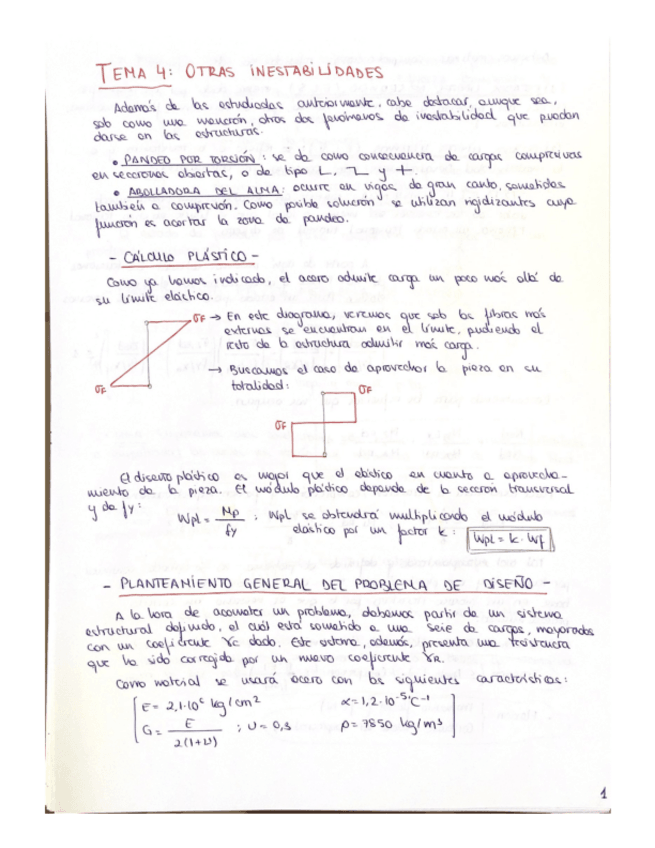 TEMA 4: OTRAS INESTABILIDADES
Además de las estudiadas anteriormente, cabe destacar, aunque sea,
solo como una mención, otros dos fenómenos de inestabilidad que puedan
darse en las estructuras.
• PANDEO POR TORSIÓN: se da como consecuencia de cargas compresivas
en secciones abiertas, o de tipo L, Z y +.
• ABOLLADURA DEL ALMA: ocurre en vigas de gran canto, sometidas
también a compresión. Como posible solución se utilizan rigidizantes cuya
función es acortar la zona de pandeo.
- CÁLCULO PLÁSTICO -
Como ya hemos indicado, el acero admite carga un poco más allá de
su límite elástico.
σF → En este diagrama, veremos que solo las fibras más
externas se encuentran en el límite, pudiendo el
resto de la estructura admitir más carga.
→ Buscamos el caso de aprovechar la pieza en su
totalidad:
σF
σF
σF
El diseño plástico es mejor que el elástico en cuanto a aprovecha-
miento de la pieza. El módulo plástico depende de la sección transversal
y de fy:
Wpl = Mp / fy ; Wpl se obtendrá multiplicando el módulo
elástico por un factor k: Wpl = k · Wf
- PLANTEAMIENTO GENERAL DEL PROBLEMA DE DISEÑO -
A la hora de acometer un problema, debemos partir de un sistema
estructural definido, el cuál está sometido a una serie de cargas, mayoradas
con un coeficiente γc dado. Este sistema, además, presenta una resistencia
que ha sido corregida por un nuevo coeficiente γR.
Como material se usará acero con las siguientes características:
E = 2,1·10⁶ kg/cm² α = 1,2·10⁻⁵ °C⁻¹
G = E / 2(1+υ) ; υ = 0,3 ρ = 7850 kg/m³
1